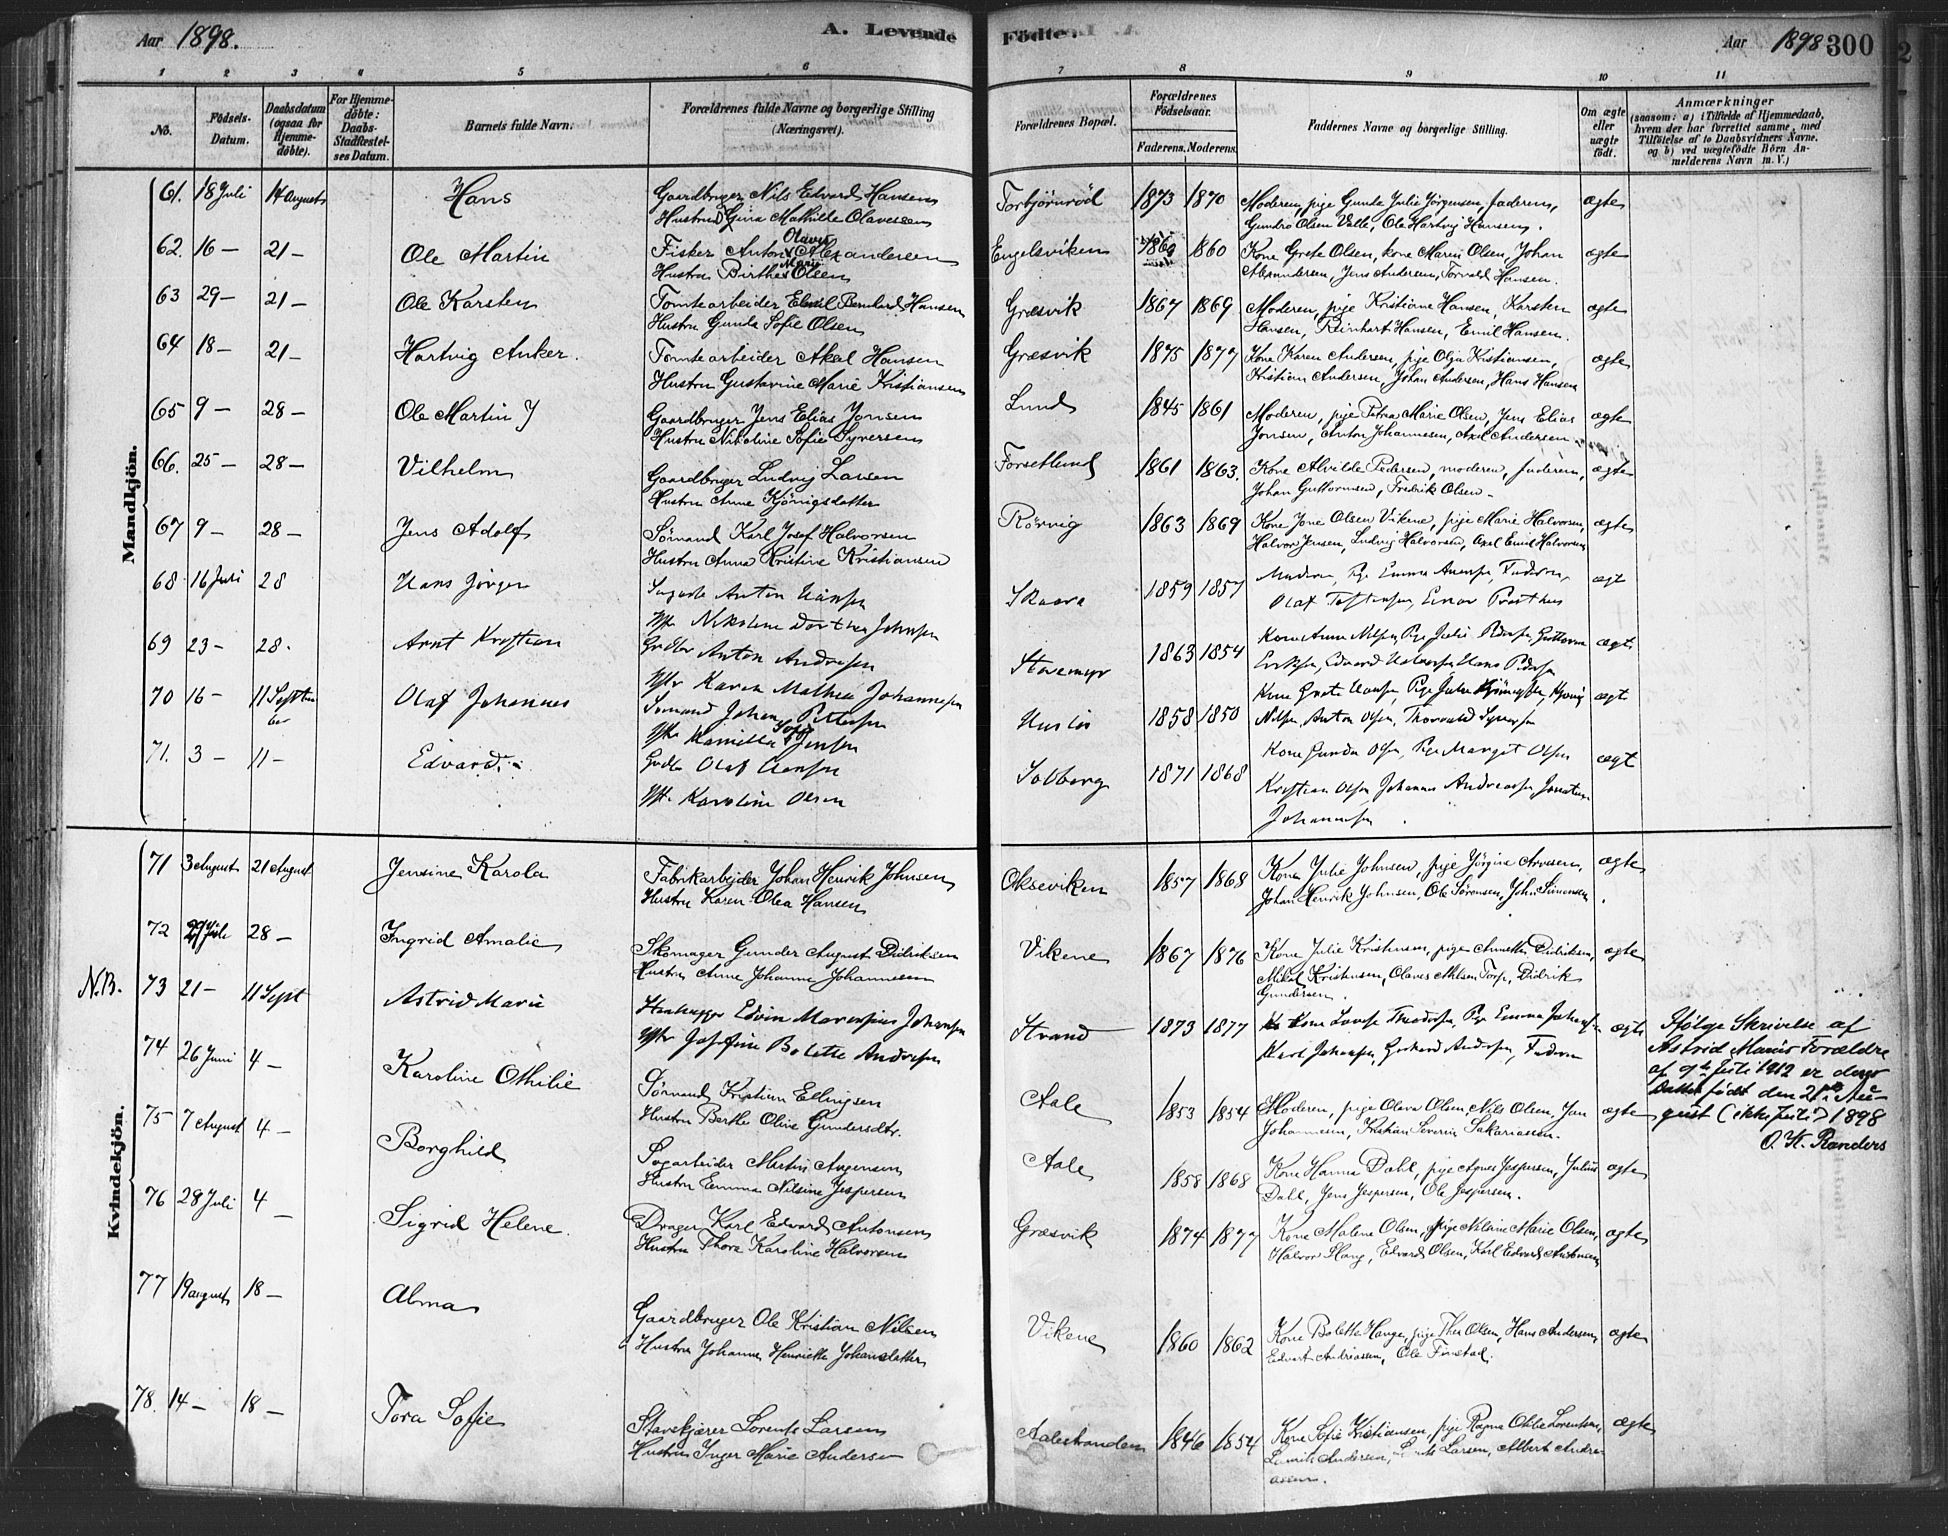 Aar 1898. A. Levende Födte. Aar 1898 300
1 2 3 4 5 6 7 8 9 10 11
No. Födsels-Datum. Daabsdatum (ogsaa for Hjemme-döbte). For Hjemme-döbte: Daabs-Stadfæstel-ses Datum. Barnets fulde Navn. Forældrenes fulde Navne og borgerlige Stilling (Næringsvei). Forældrenes Bopæl. Forældrenes Födselsaar. Faderens. Moderens. Faddernes Navne og borgerlige Stilling. Om ægte eller uægte födt. Anmærkninger (saasom: a) i Tilfælde af Hjemmedaab, hvem der har forrettet samme, med Tilföielse af to Daabsvidners Navne. og b) ved uægtefödte Börn An-melderens Navn m. V.)
Mandkjön.
61. 18 Juli 14 August Hans Gaardbruger Nils Edvard Hansen Torbjörnröd 1873 1870 Moderen, pige Gunda Julie Jörgensen, faderen, ægte
Hustru Gina Mathilde Olavesen Gundro Olsen Valle, Ole Hartvig Hansen.
62. 16 — 21 — Ole Martin Fisker Anton Olaves Alexandersen Engelsviken 1860 Kone Grete Olsen, kone Maren Olsen, Johan ægte
Hustru Birthe Marie Olsen Alexandersen, Jens Andersen, Torvald Hansen.
63 29 — 21 — Ole Karsten Tomtearbeider Emil Bernhard Hansen Græsvik 1867 1869 Moderen, pige Kristiane Hansen, Karsten ægte
Hustru Gunda Sofie Olsen Hansen, Reinhart Hansen, Emil Hansen.
64 18 — 21 — Hartvig Anker. Tomtearbeider Aksel Hansen Græsvik 1875 1877 Kone Karen Andersen, pige Olga Kristiansen, ægte
Hustru Gustavine Marie Kristiansen Kristian Andersen, Johan Andersen, Hans Hansen
65 9 — 28 — Ole Martin J Gaardbruger Jens Elias Jonsen Lund 1845 1861 Moderen, pige Petra Marie Olsen, Jens Elias ægte
Hustru Nikoline Sofie Syversen Jonsen, Anton Johannesen, Axel Andersen
66. 25 — 28 — Vilhelm Gaardbruger Ludvig Larsen Forsetlund 1861 1863. Kone Alvilde Pedersen, moderen, faderen, ægte
Hustru Anne Kjönigsdatter Johan Guttormsen, Fredrik Olsen -
67 9 — 28 — Jens Adolf Sömand Karl Josef Halvorsen Rörvig 1863 1869 Kone Jone Olsen Vikene, pige Marie Halvorsen, ægte
Hustru Anna Kristine Kristiansen Halvor Jensen, Ludvig Halvorsen, Axel Emil Halvorsen
68 16 Juli 28 Hans Jörgen Anton Hansen Skaara 1859 1857 Moderen, Pige Emma Faderen, ægt
Nikoline Dorthea Johnsen Olaf Einar
69 23 — 28. Arnt Kristian Grdbr Anton Andresen 1863 1854 Kone Anna Nilsen, Pige Julie Guttorm ægt
Karen Mathea Johannesen Edvard Halvorsen Hans Pedersen
70 16 — 11 September Olaf Johannes Sömand Johan Pettersen 1858 1850 Kone Grete Hansen, Pige ægt
Kamilla Sofie Jensen Nilsen, Anton Olsen, Thorvald Syversen
71. 3 — 11 — Edvard Grdbr Olaf Hansen Solberg 1871 1868 Kone Gunda Olsen, Pige Margit Olsen ægt
Karoline Olsen Kristian Olsen Johannes Andreassen, Jonatan
Johannesen.
Kvindekjön.
71 3 August 21 August Jensine Karola Fabrikarbejder Johan Henrik Johnsen Okseviken 1857 1868 Kone Julie Johnsen, pige Jörgine Arvesen, ægte
Hustru Karen Olea Hansen Johan Henrik Johnsen, Ole Sörensen, John Simensen.
72 29 Juli 28 — Ingrid Amalie Skomager Gunder August Didriksen Vikene 1867 1876 Kone Julie Kristensen, pige Annette Didriksen, ægte
Hustru Anne Johanne Johannesen Mikal Kristensen, Olaves Nilsen Torp, Didrik
Gundersen.
N.B. 73 21 — 11 Sept Astrid Marie Stenhugger Edvin Johansen Strand 1873 1877 Kone Lovise Pige Emma Johansen ægte Ifölge Skrivelse af
Josefine Bolette Andresen Karl Johansen, Gerhard Andersen, Faderen Astrid Maries Forældre
af 9de Juli 1912 er denne
Datter født den 21de Au-
gust (ikke Juli) 1898
O. K. Randers
74 26 Juni 4 — Karoline Othilie Sömand Kristian Ellingsen Aale 1853 1854 Moderen, pige Olava Olsen, Nils Olsen, Jan ægte
Hustru Berthe Oline Gundersdtr. Johannesen, Kristian Severin Sakariassen.
75 7 August 4 — Borghild Sagarbeider Martin Aagensen Aale 1858 1868 Kone Hanna Dahl, pige Agnes Jespersen, Julius ægte
Hustru Emma Nilsine Jespersen Dahl, Jens Jespersen, Ole Jespersen.
76 28 Juli 4 — Sigrid Helene. Drager Karl Edvard Antonsen Græsvik 1874 1877 Kone Malene Olsen, pige Milane Marie Olsen, ægte
Hustru Thora Karoline Halvorsen Halvor Hang, Edvard Olsen, Karl Edvard Antonsen
77 19 august 18 — Alma Gaardbruger Ole Kristian Nilsen Vikene 1860 1862 Kone Bolette Hauge, pige Thea Olsen, Hans Andersen, ægte
Hustru Johanne Henriette Johansdatter Edvart Andreassen, Ole Finstad.
78. 14 — 18 — Tora Sofie Stavskjærer Lorents Larsen Aalestranden 1846 1854 Kone Sofie Kristiansen, pige Ragna Othilie Lorentsen, ægte
Hustru Inger Marie Andersen Laurits Andersen, Larsen, Albert Andre-
assen.